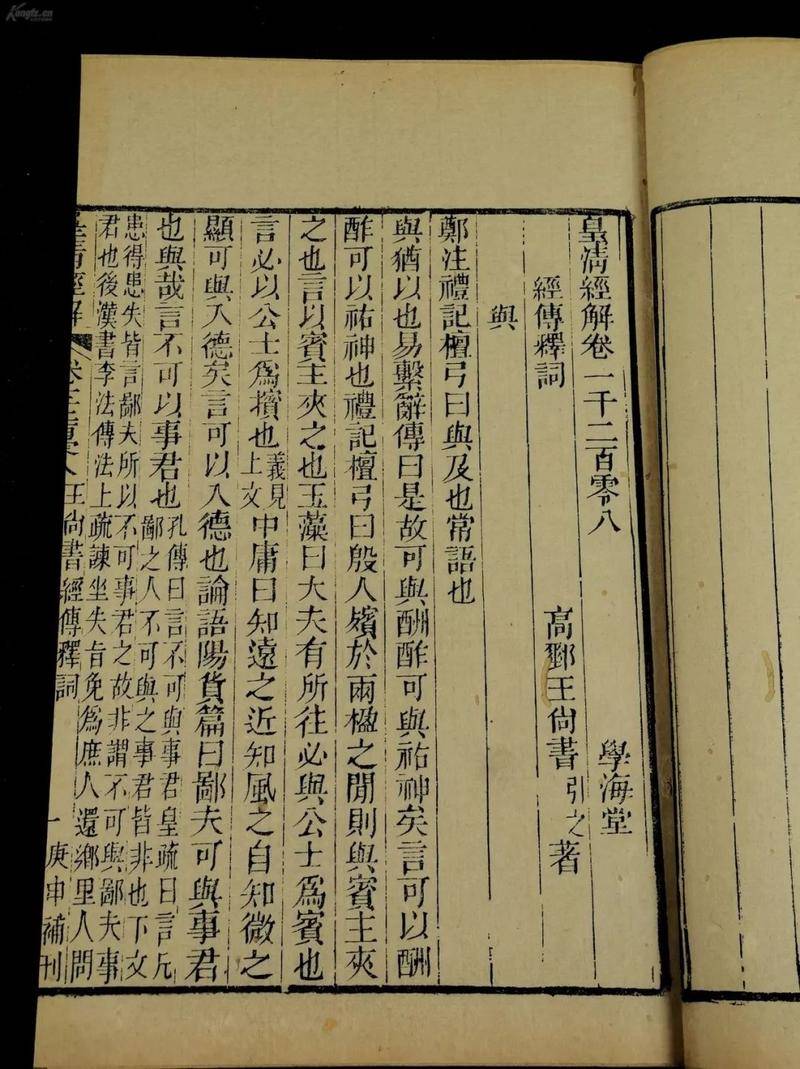 Kongfz.cn
皇清經解卷一千二百零八
學海堂
經傳釋詞
高郵王尚書引之著
與
鄭注禮記檀弓曰與及也常語也
與猶以也易繫辭傳曰是故可與酬酢可與祐神矣言可以酬
酢可以祐神也禮記檀弓曰殷人殯於兩楹之閒則與賓主夾
之也言以賓主夾之也玉藻曰大夫有所往必與公士爲賓也
言必以公士爲擯也義見上文中庸曰知遠之近知風之自知微之
顯可與入德矣言可以入德也論語陽貨篇曰鄙夫可與事君
也與哉言不可以事君也孔傳曰言不可與事君皇疏曰言凡
鄙之人不可與之事君皆非也下文
患得患失皆言鄙夫所以不可事君之故非謂不可與鄙夫事
君也後漢書李法傳法上疏諫坐失旨免爲庶人還鄉里人問
皇清經解
王尚書經傳釋詞
一
庚申補刊